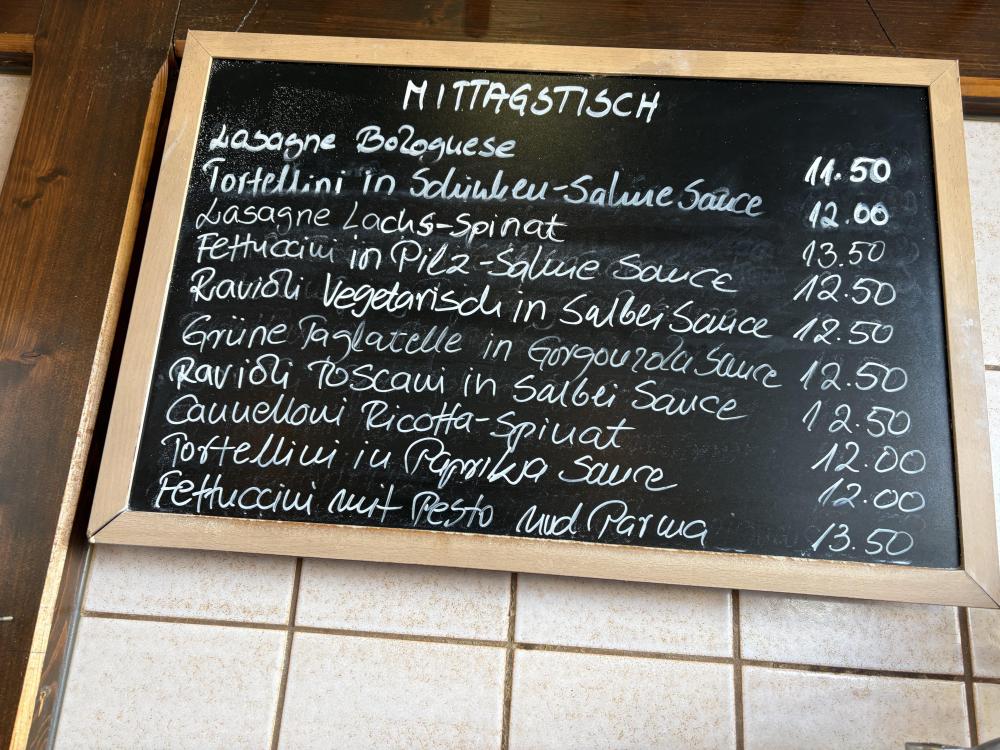 MITTAGSTISCH
Lasagne Bolognese 11.50
Tortellini in Schinken-Sahne Sauce 12.00
Lasagne Lachs-Spinat 13.50
Fettuccini in Pilz-Sahne Sauce 12.50
Ravioli Vegetarisch in Salbei Sauce 12.50
Grüne Taglatelle in Gorgonzola Sauce 12.50
Ravioli Toscani in Salbei Sauce 12.50
Cannelloni Ricotta-Spinat 12.00
Tortellini in Paprika Sauce 12.00
Fettuccini mit Pesto und Parma 13.50